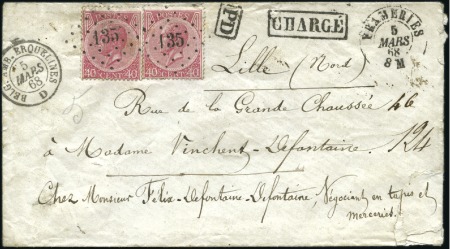 135 135
40 CENT. 40
40 CENT. 40
PD
CHARGÉ
FRAMERIES
5
MARS
68
8 M
BELG. AMB. ERQUELINES
5
MARS
68
Lille (Nord)
Rue de la Grande Chaussée 46
à Madame Vinchent-Defontaine,
124
Chez Monsieur Félix-Defontaine-Defontaine, Négociant en tapis et
merceries.